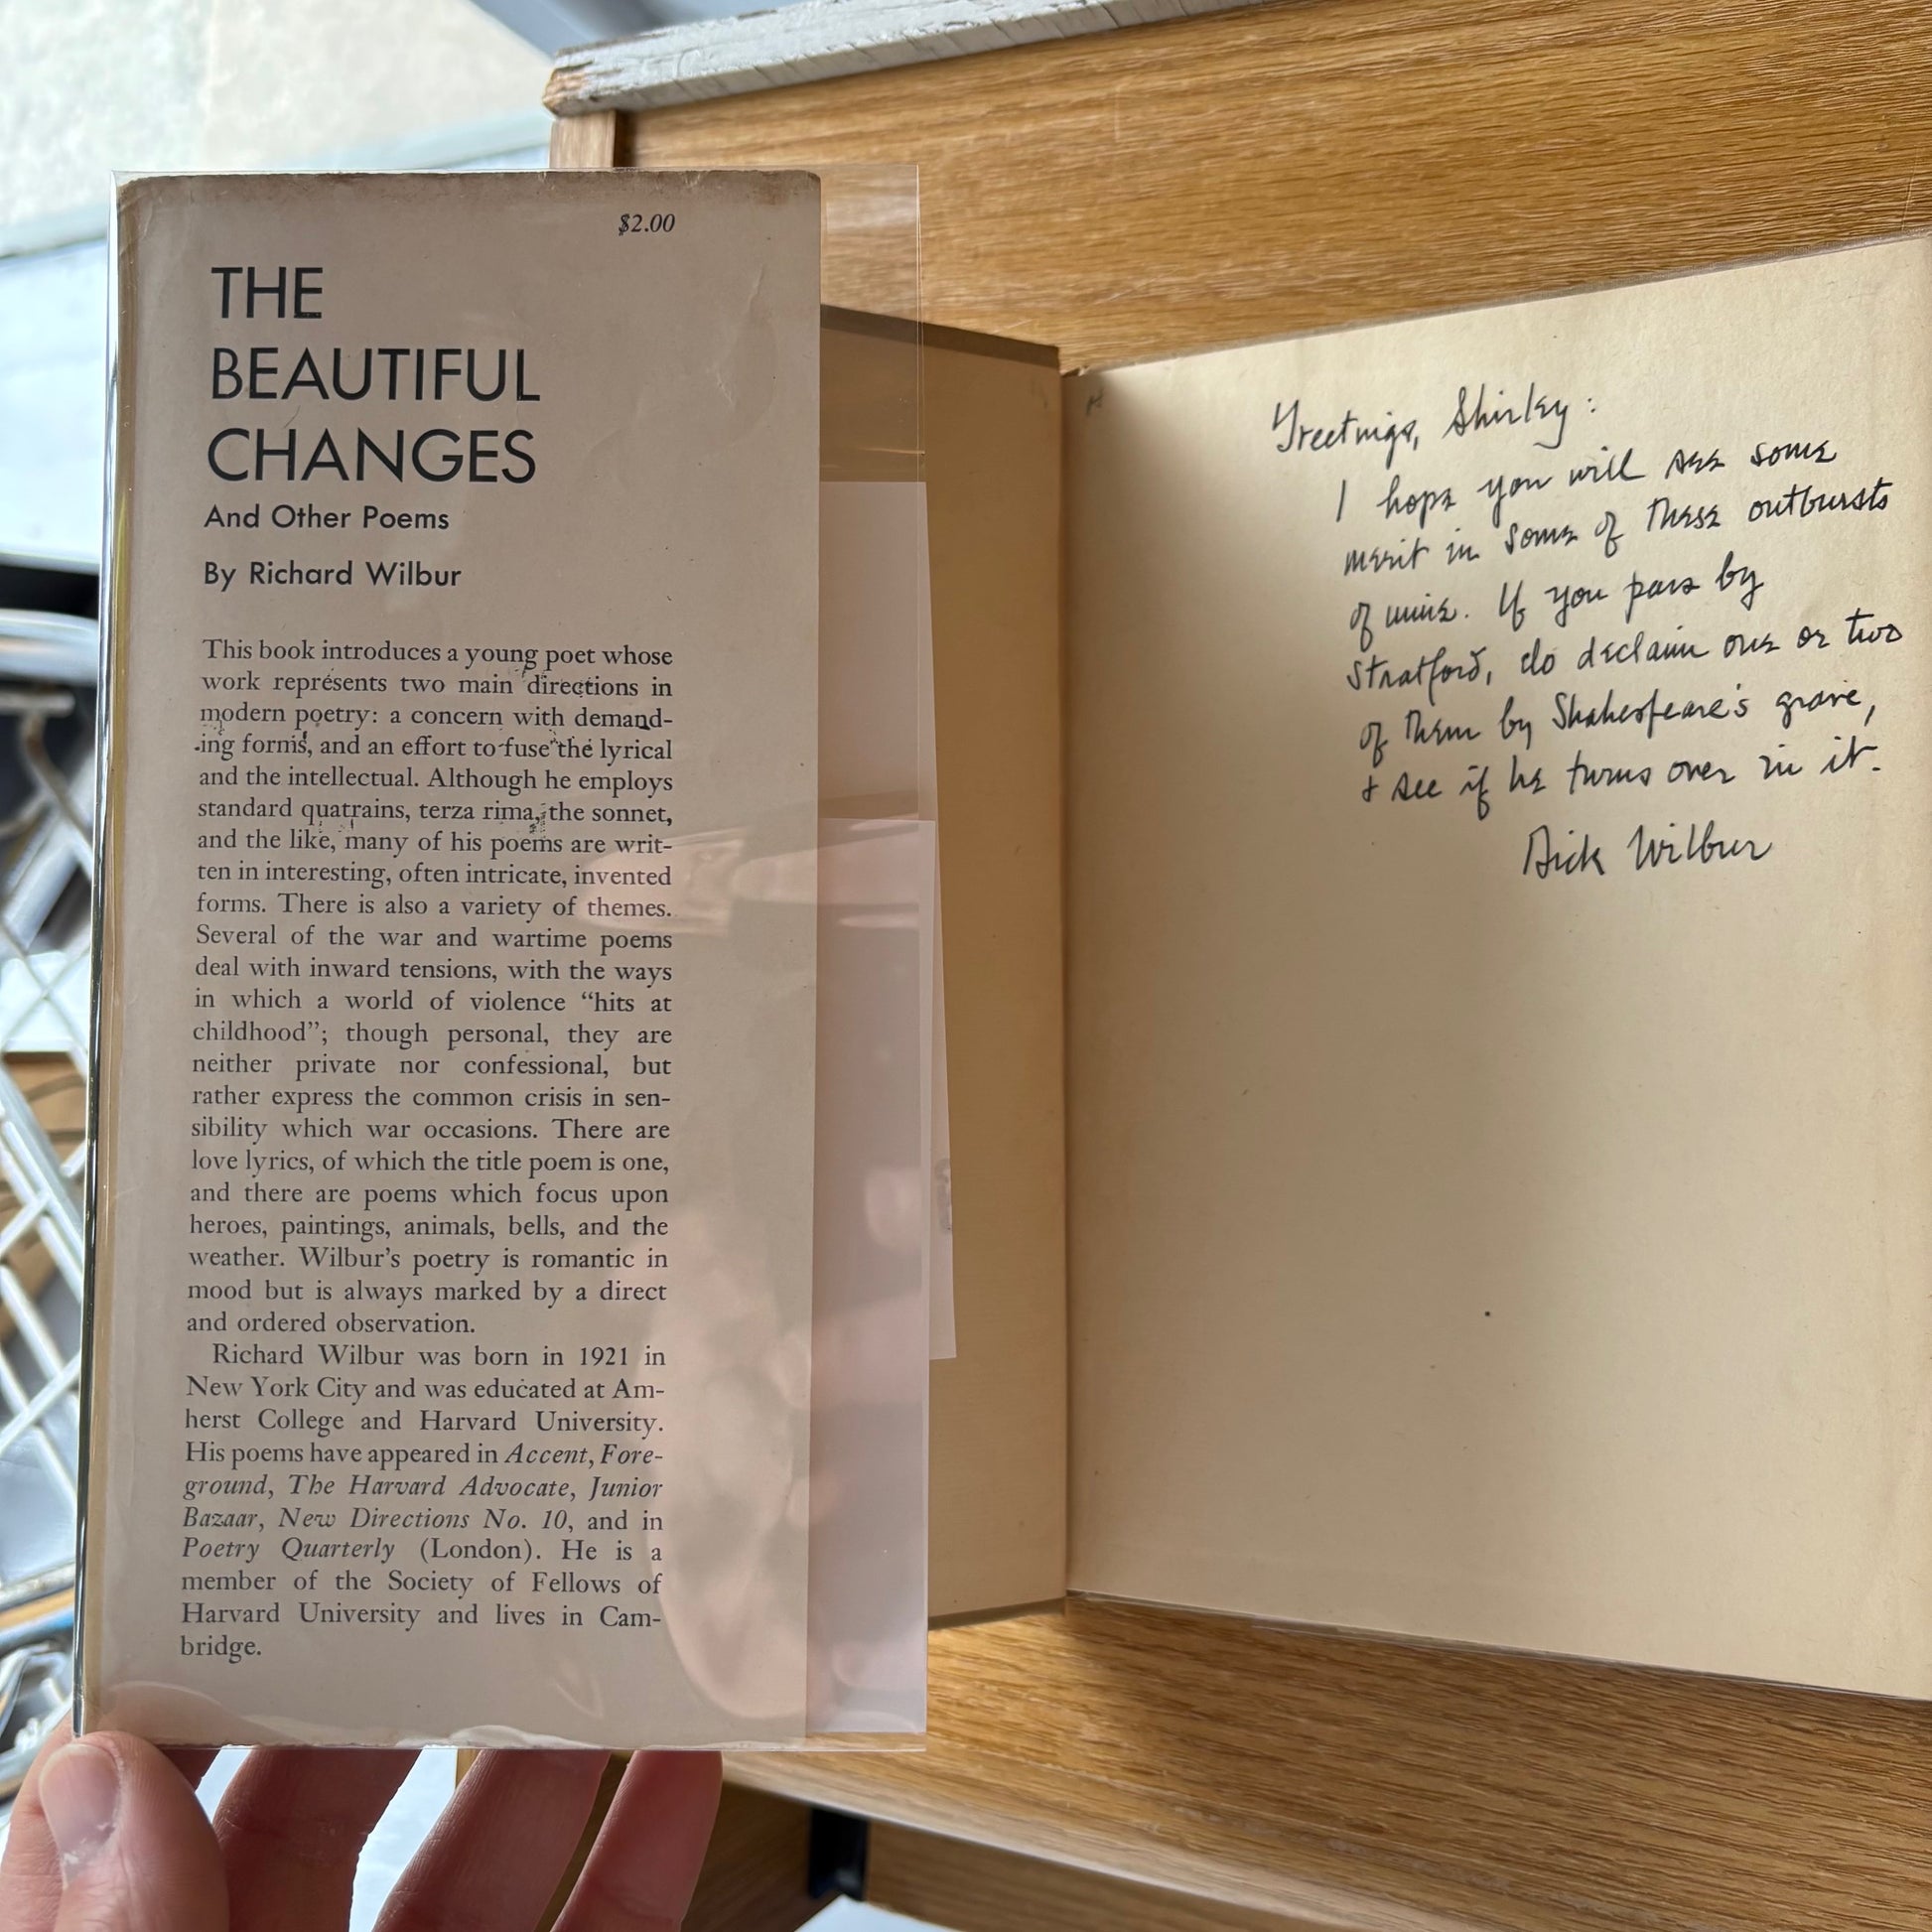 $2.00
THE
BEAUTIFUL
CHANGES
And Other Poems
By Richard Wilbur
This book introduces a young poet whose
work represents two main directions in
modern poetry: a concern with demand-
ing forms, and an effort to fuse the lyrical
and the intellectual. Although he employs
standard quatrains, terza rima, the sonnet,
and the like, many of his poems are writ-
ten in interesting, often intricate, invented
forms. There is also a variety of themes.
Several of the war and wartime poems
deal with inward tensions, with the ways
in which a world of violence “hits at
childhood”; though personal, they are
neither private nor confessional, but
rather express the common crisis in sen-
sibility which war occasions. There are
love lyrics, of which the title poem is one,
and there are poems which focus upon
heroes, paintings, animals, bells, and the
weather. Wilbur’s poetry is romantic in
mood but is always marked by a direct
and ordered observation.
Richard Wilbur was born in 1921 in
New York City and was educated at Am-
herst College and Harvard University.
His poems have appeared in Accent, Fore-
ground, The Harvard Advocate, Junior
Bazaar, New Directions No. 10, and in
Poetry Quarterly (London). He is a
member of the Society of Fellows of
Harvard University and lives in Cam-
bridge.
Greetings, Shirley:
I hope you will see some
merit in some of these outbursts
of mine. If you pass by
Stratford, do declaim one or two
of them by Shakespeare's grave,
& see if he turns over in it.
Dick Wilbur